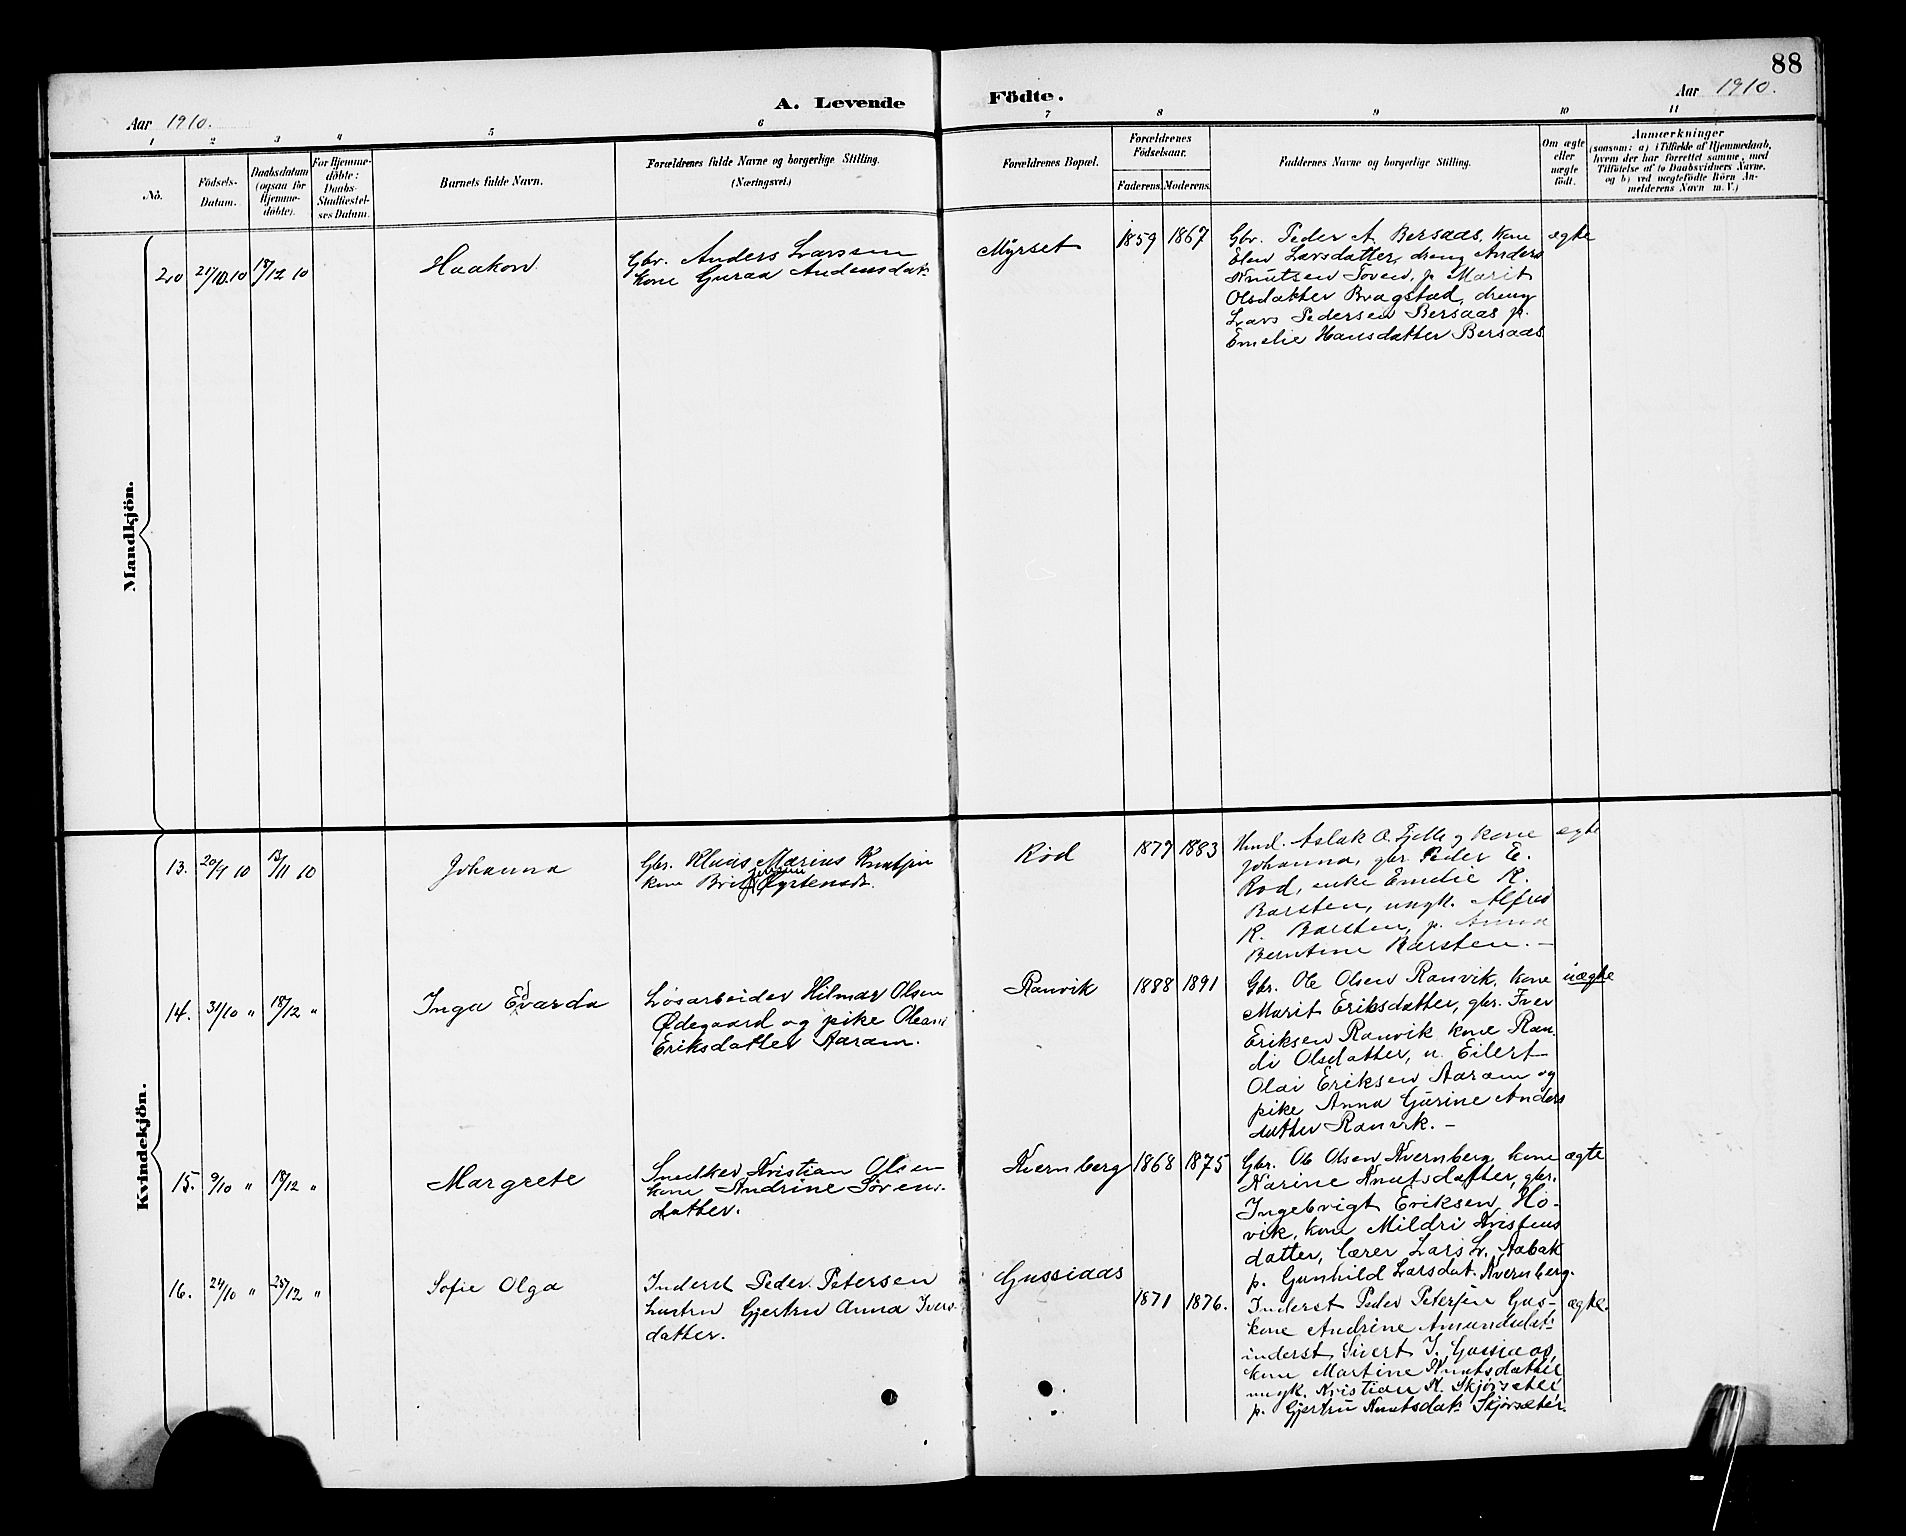 88
A. Levende Födte.
Aar 1910.
Aar 1910.
1 2 3 4 5 6 7 8 9 10 11
No.
Födsels-
Datum.
Daabsdatum
(ogsaa for
Hjemme-
döbte).
For Hjemme-
döbte:
Daabs-
Stadfæstel-
ses Datum.
Barnets fulde Navn.
Forældrenes fulde Navne og borgerlige Stilling.
(Næringsvei.)
Forældrenes Bopæl.
Forældrenes
Födselsaar.
Faderens. Moderens.
Faddernes Navne og borgerlige Stilling.
Om ægte
eller
uægte
födt.
Anmærkninger
(saasom: a) i Tilfælde af Hjemmedaab,
hvem der har forrettet samme, med
Tilföielse af to Daabsvidners Navne,
og b) ved uægtefödte Börn An-
melderens Navn m. V.)
Mandkjön.
20 21/10.10 18/12 10
Haakon
Gbr. Anders Larssen
kone Guraa Andersdat.
Myrset
1859 1867
Gbr. Peder A. Bersaas, kone
Elen Larsdatter, dreng Anders
Knutsen Toven, p. Marit
Olsdatter Bragstad, dreng
Lars Pedersen Bersaas p.
Emelie Hansdatter Bersaas
ægte
Kvindekjön.
13. 20/9 10 13/11 10
Johanna
Gbr. Klaus Marius Knutsen
kone Brit Jørgensdt.
Rød
1879 1883
Hmd. Aslak O. Fjelle og kone
Johanna, gbr. Peder E.
Rød, enke Emelie K.
Barsten, ungk. Alfred
K. Barsten, p. Anna
Berntine Barsten. –
ægte
14. 31/10 " 18/12 "
Inga Edvarda
Løsarbeider Hilmar Olsen
Ødegaard og pike Oleani
Eriksdatter Aaram.
Ranvik
1888 1891
Gbr. Ole Olsen Ranvik, kone
Marit Eriksdatter, gbr. Iver
Eriksen Ranvik kone Ran-
di Olsdatter, u. Eilert
Olai Eriksen Aaram og
pike Anna Gurine Anders
datter Ranvik. –
uægte
15. 9/10 " 18/12 "
Margrete
Snedker Kristian Olsen
kone Andrine Søvens-
datter.
Kvernberg
1868 1875
Gbr. Ole Olsen Kvernberg kone
Karine Knutsdatter, gbr.
Ingebrigt Eriksen Ho-
vik, kone Mildri Kristens
datter, lærer Lars L. Aabak
p. Gunhild Larsdat. Kvernberg.
ægte
16. 24/10 " 25/12 "
Sofie Olga
Inderst Peder Petersen
hustru Gjertru Anna Ivers-
datter.
Gussiaas
1871 1876.
Inderst Peder Petersen Gus-
kone Andrine Amundsdat.
inderst Sivert I. Gussiaas,
kone Martine Knutsdatter
ungk. Kristian K. Skjørsæter
p. Gjertru Knutsdat. Skjørsæter.
ægte.